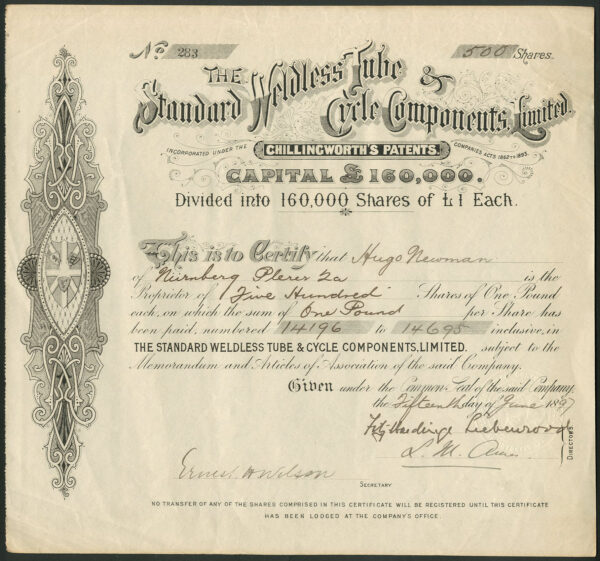 No. 283 500 Shares.
THE Standard Weldless Tube & Cycle Components, Limited.
INCORPORATED UNDER THE COMPANIES ACTS 1862 TO 1893.
CHILLINGWORTH'S PATENTS.
CAPITAL £160,000.
Divided into 160,000 Shares of £1 Each.
This is to Certify that Hugo Newman
of Nürnberg Plerer 2a is the
Proprietor of Five Hundred Shares of One Pound
each, on which the sum of One Pound per Share has
been paid, numbered 14196 to 14695 inclusive, in
THE STANDARD WELDLESS TUBE & CYCLE COMPONENTS, LIMITED. subject to the
Memorandum and Articles of Association of the said Company.
Given under the Common Seal of the said Company
the Fifteenth day of June 1897
Fitz Hardinge Liebenrood
L. M.
DIRECTORS
Ernest H Wilson
SECRETARY
NO TRANSFER OF ANY OF THE SHARES COMPRISED IN THIS CERTIFICATE WILL BE REGISTERED UNTIL THIS CERTIFICATE
HAS BEEN LODGED AT THE COMPANY'S OFFICE.